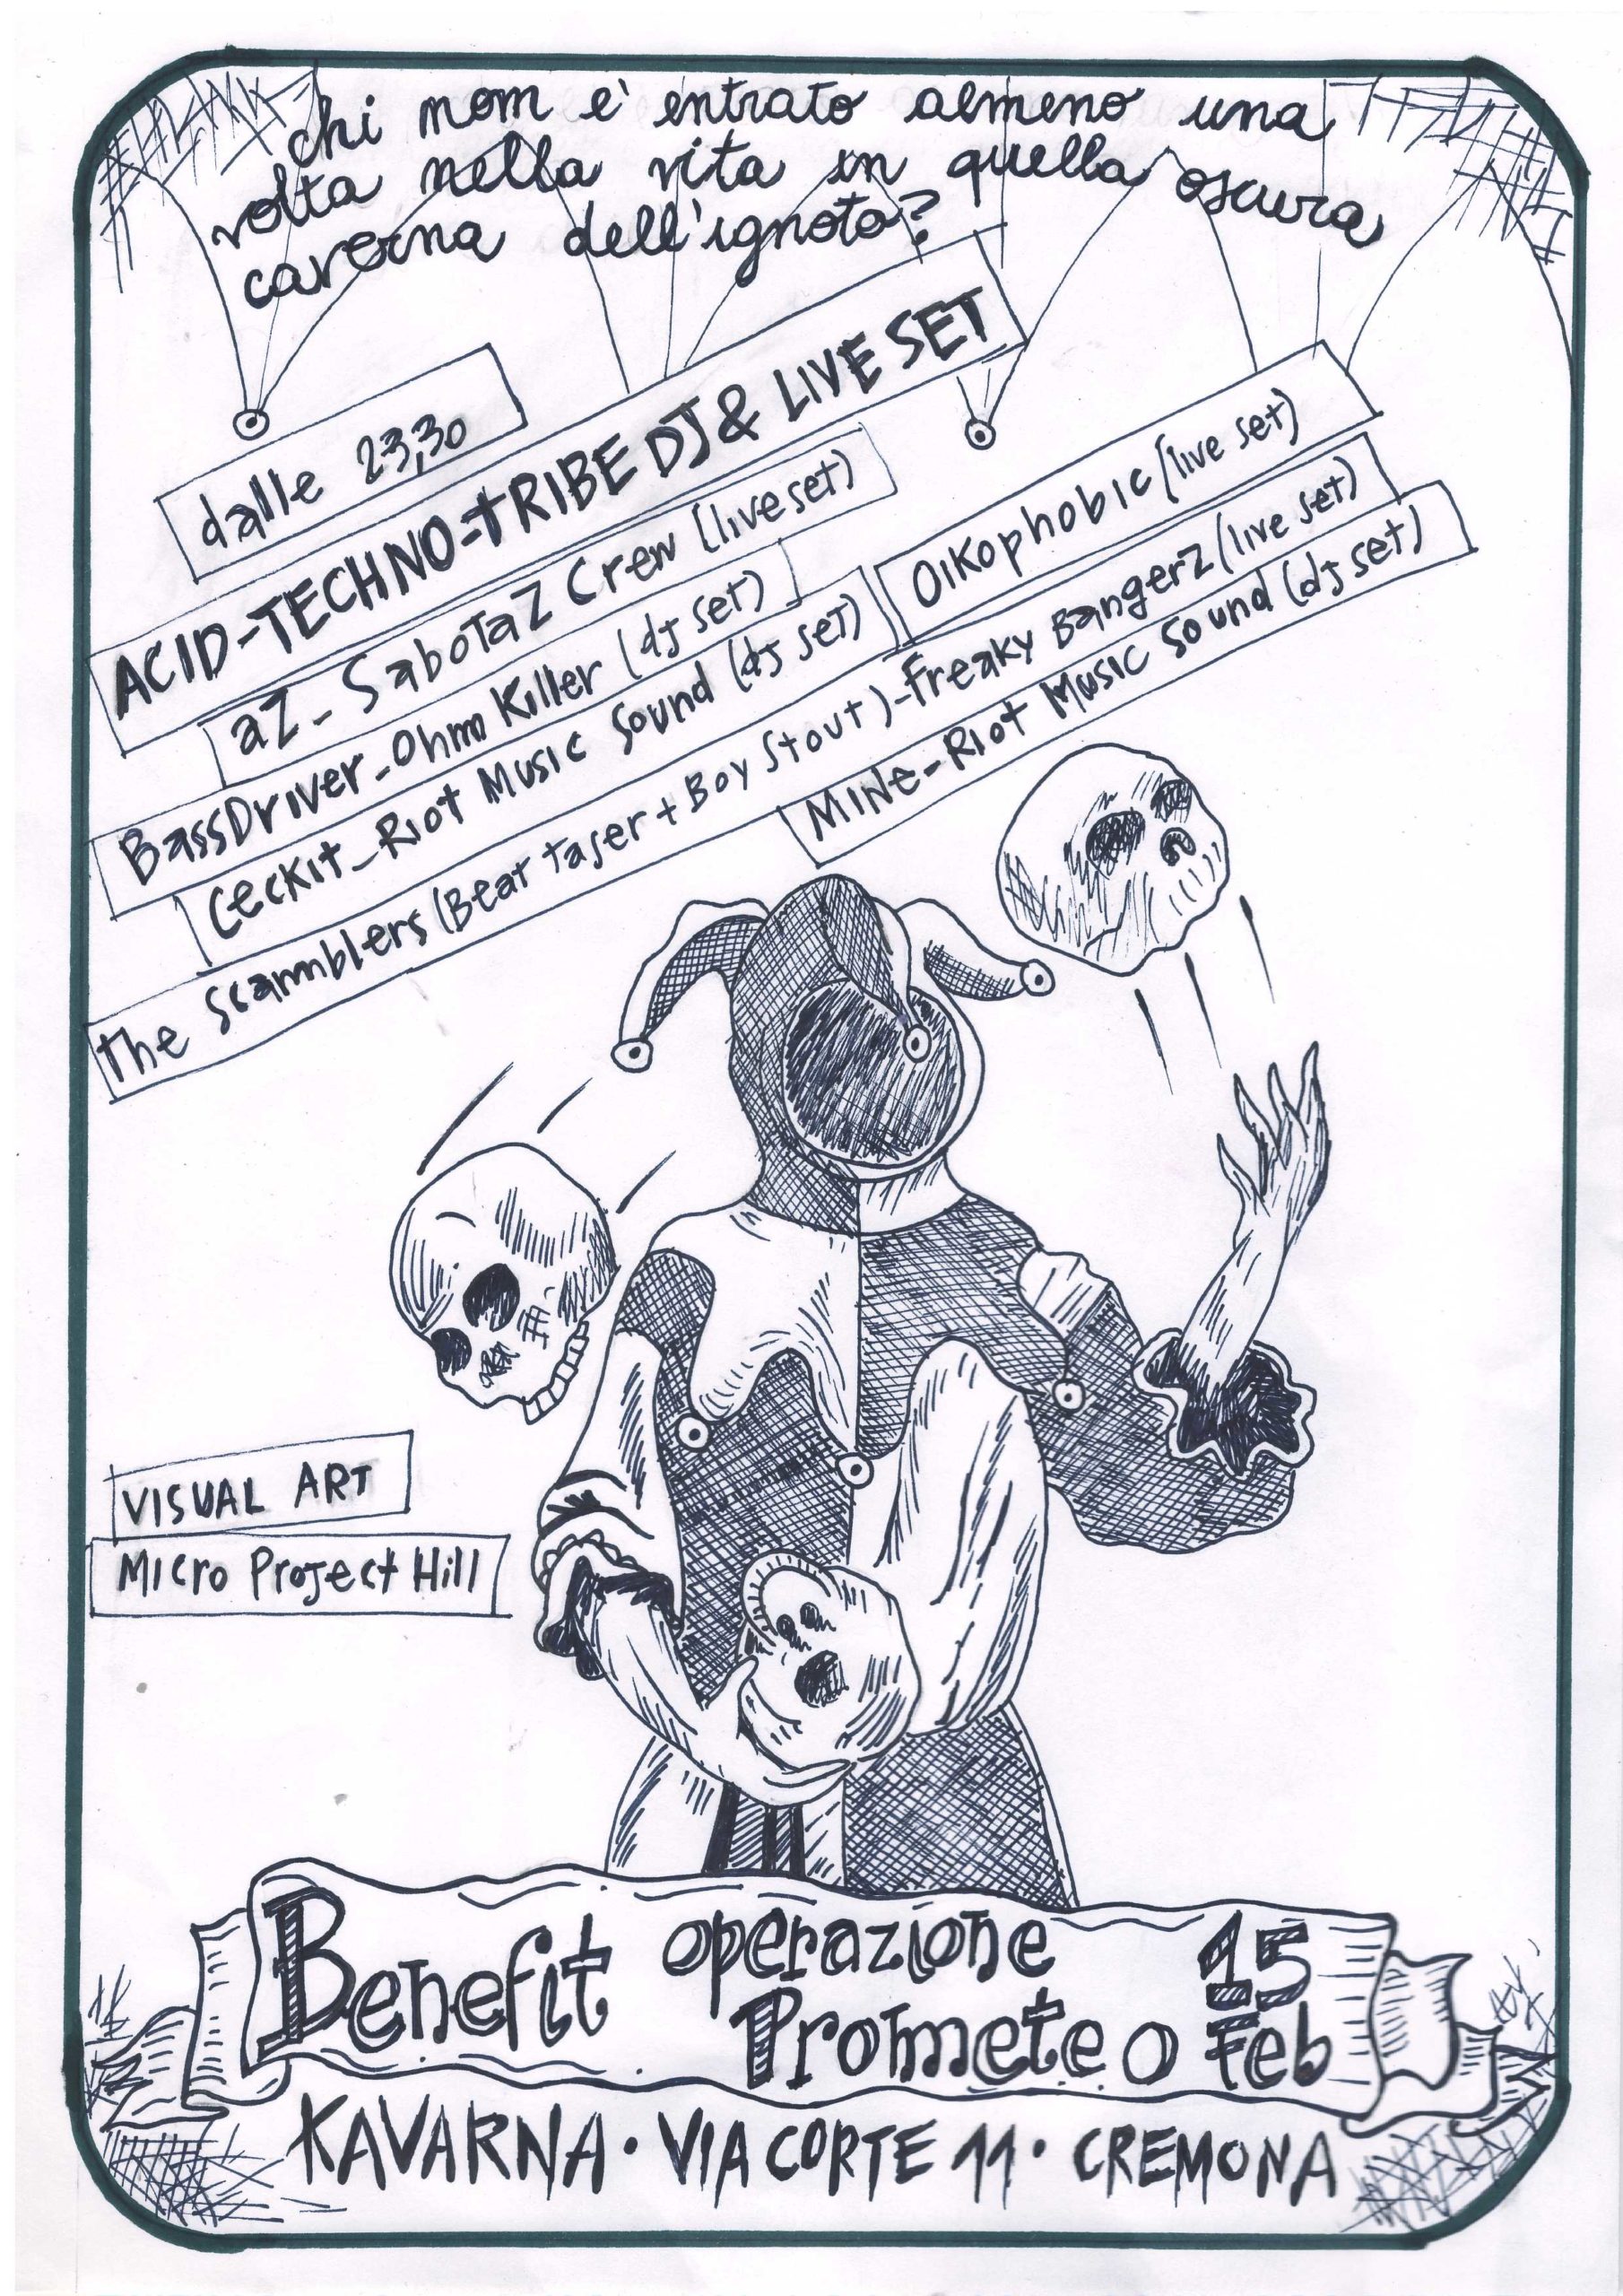 chi non e' entrato almeno una
volta nella vita in quella oscura
caverna dell'ignoto?
dalle 23,30
ACID-TECHNO-TRIBE DJ & LIVE SET
aZ_SaboTaZ Crew (live set)
BassDriver_Ohm Killer (dj set)
Ceckit_Riot Music Sound (dj set)
Oikophobic (live set)
The Scammblers (Beat taser + Boy Stout)-Freaky BangerZ (live set)
Mine-Riot Music Sound (dj set)
VISUAL ART
Micro Project Hill
Benefit operazione 15
Prometeo Feb
KAVARNA • VIA CORTE 11 • CREMONA